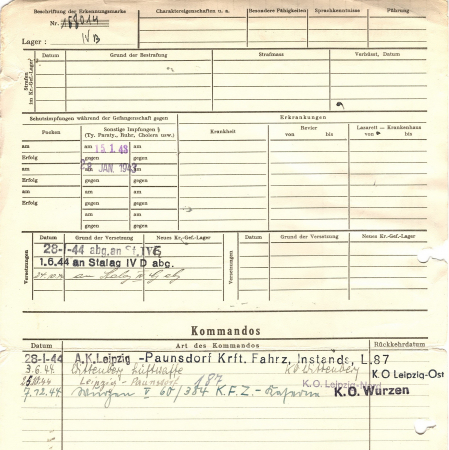 Beschriftung der Erkennungsmarke
Nr. 158014
Lager: IV B
Charaktereigenschaften u. a.
Besondere Fähigkeiten
Sprachkenntnisse
Führung
Strafen im Kr.-Gef.-Lager
Datum
Grund der Bestrafung
Strafmass
Verbüsst, Datum
Schutzimpfungen während der Gefangenschaft gegen
Erkrankungen
Pocken
Sonstige Impfungen
(Ty. Paraty., Ruhr, Cholera usw.)
Krankheit
Revier
von bis
Lazarett — Krankenhaus
von bis
am am 15.1.43 am
Erfolg gegen gegen
am am 29. JAN. 1943 am
Erfolg gegen gegen
am am am
Erfolg gegen gegen
am am
gegen gegen
Versetzungen
Datum
Grund der Versetzung
Neues Kr.-Gef.-Lager
Versetzungen
Datum
Grund der Versetzung
Neues Kr.-Gef.-Lager
28-1-44 abg. an St. IV G
1.6.44 an Stalag IV D abg.
an Stalag IV G abg
Kommandos
Datum
Art des Kommandos
Rückkehrdatum
28-1-44 A.K. Leipzig -Paunsdorf Krft. Fahrz, Instands, L.87
3.6.44 Wittenberg Luftwaffe K.O Wittenberg K.O Leipzig-Ost
Leipzig - Paunsdorf L 87 K.O. Leipzig-Nord
7.12.44 Wurzen V 60/384 K.F.Z. - Kaserne K.O. Wurzen